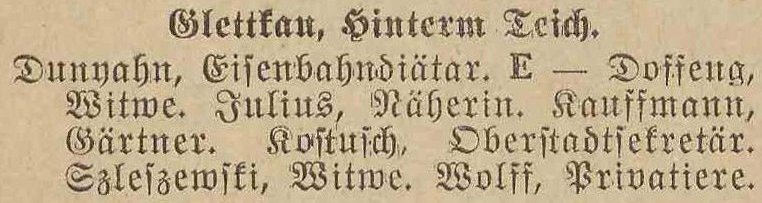 Glettkau, Hinterm Teich.
Dunyahn, Eisenbahndiätar. E — Dosseng,
Witwe. Julius, Näherin. Kauffmann,
Gärtner. Kostusch, Oberstadtsekretär.
Szleszewski, Witwe. Wolff, Privatiere.